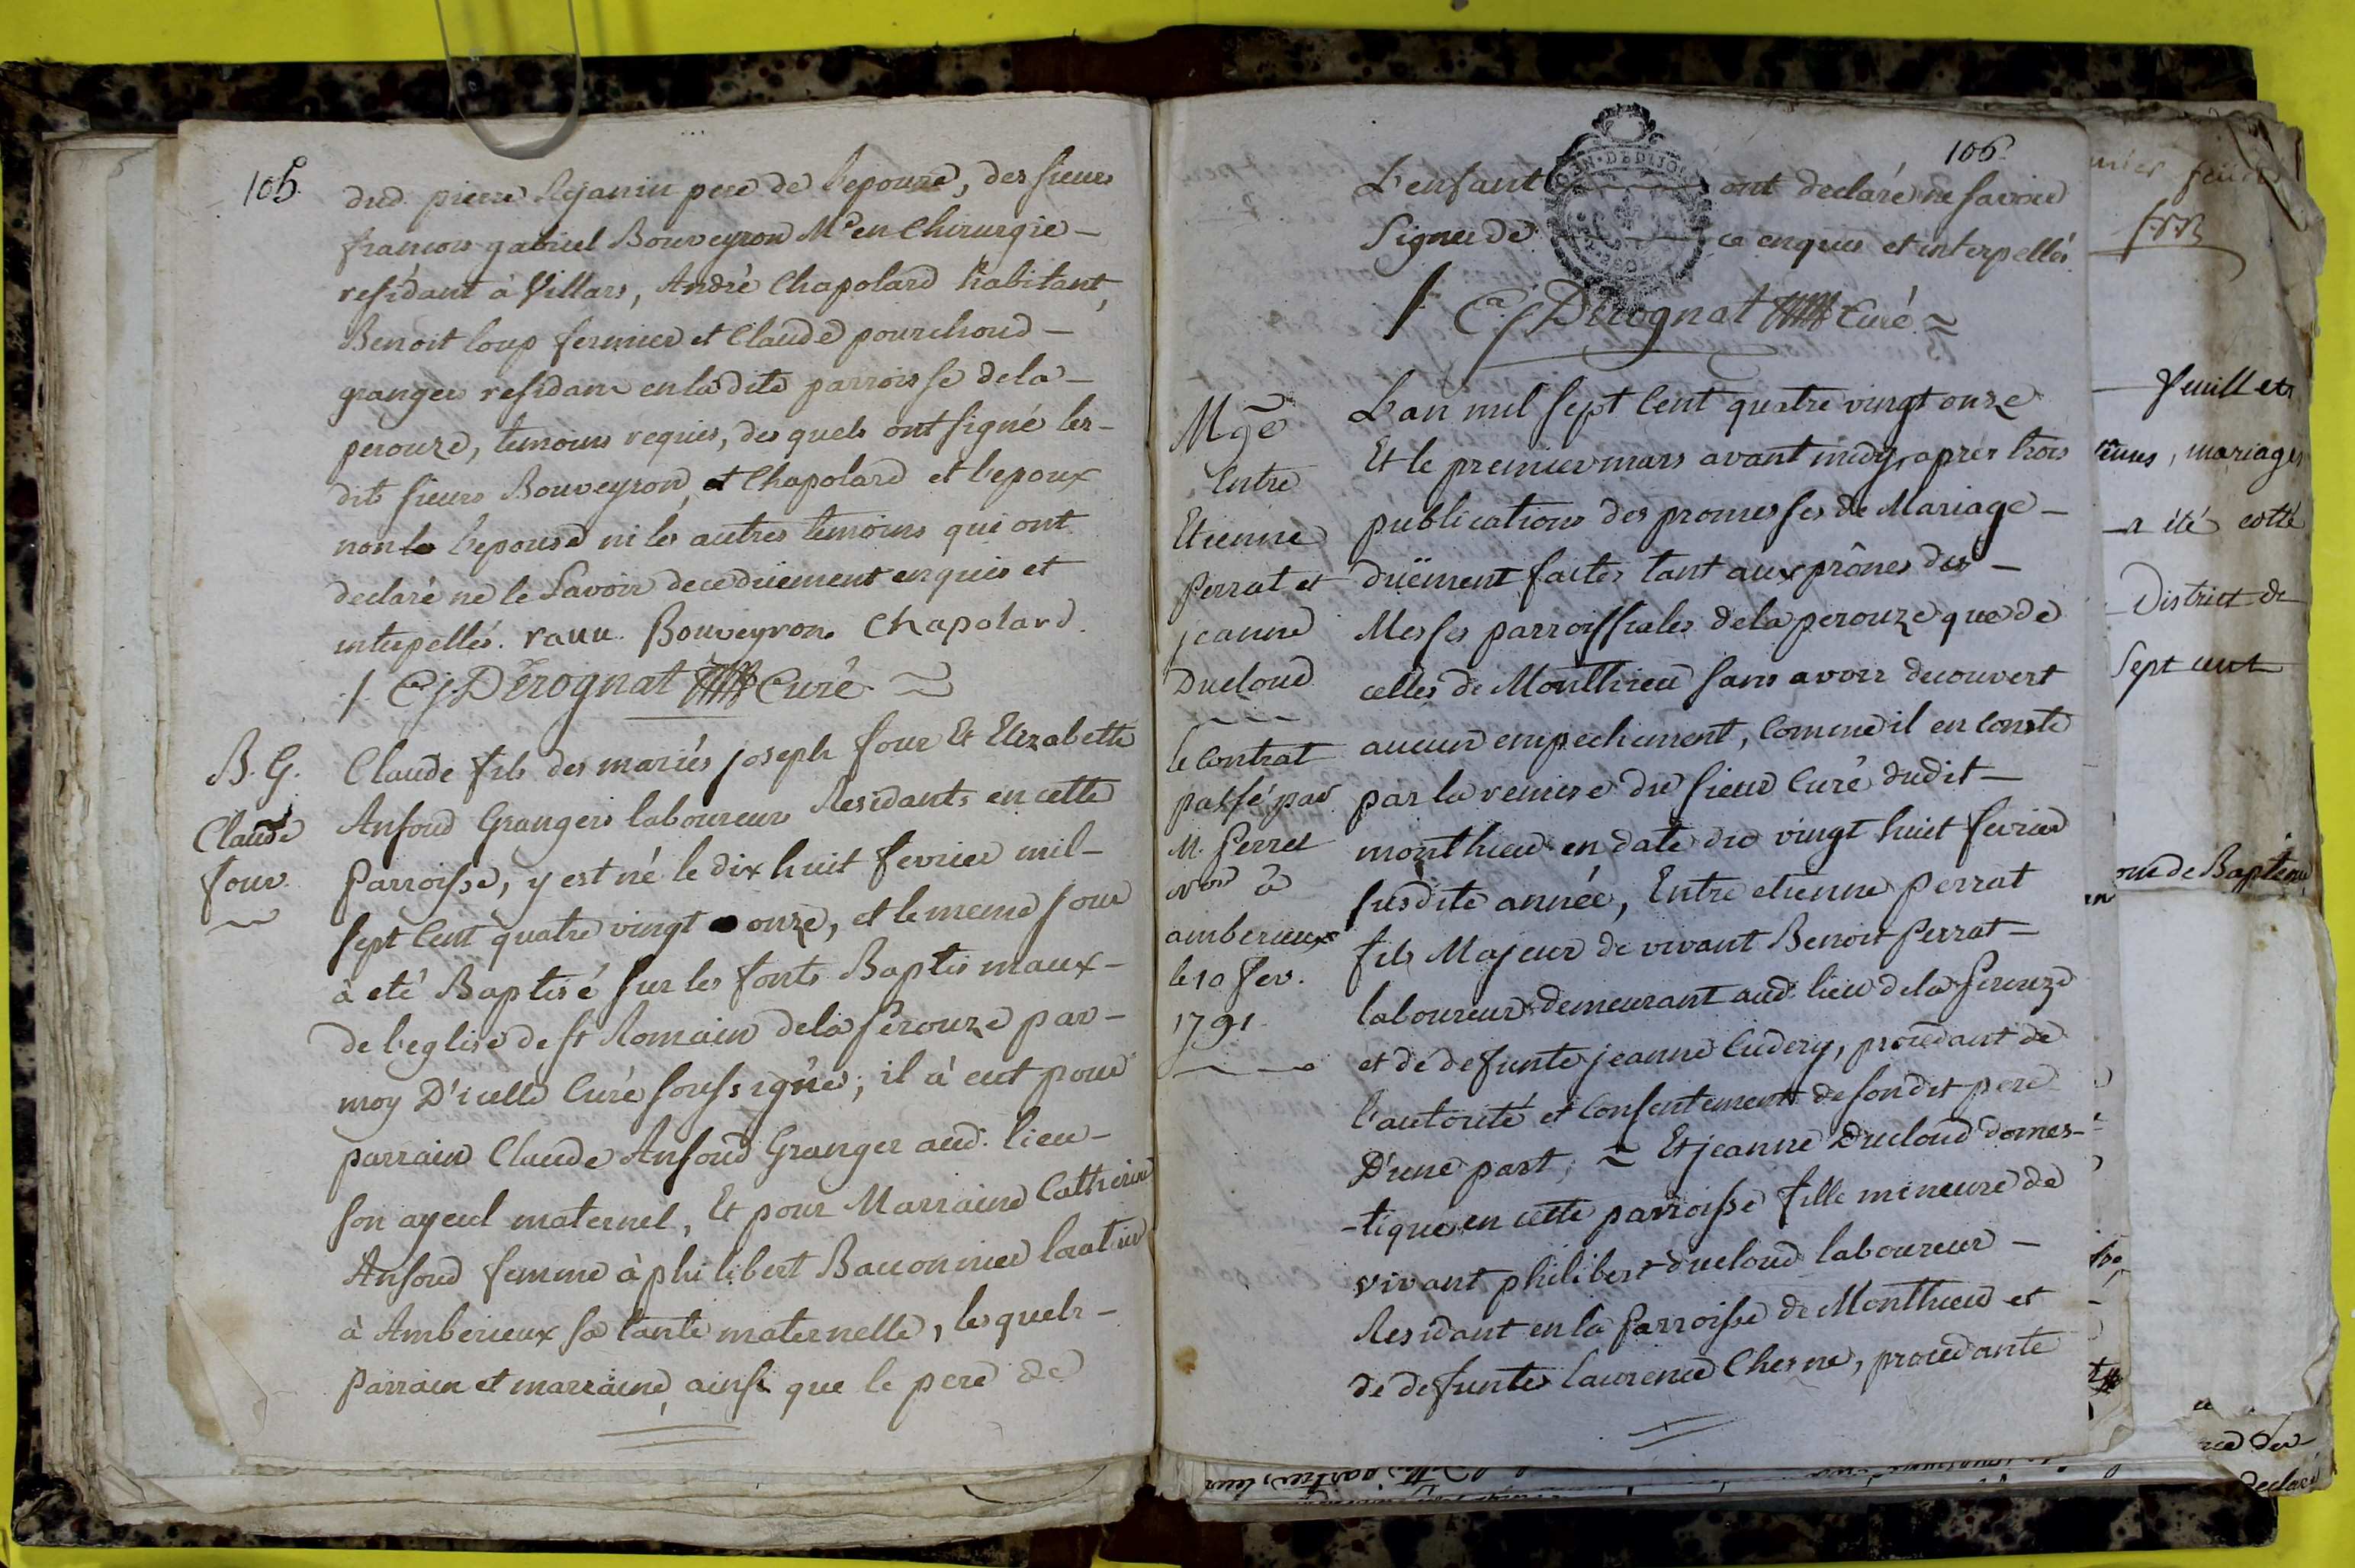 105.
dud. pierre Rejanin pere de l'epouze, des sieurs
francois gabriel Bouveyron Me en Chirurgie -
residant à Villars, André Chapolard habitant,
Benoit loup fermier et Claude pourchoud -
granger residans en ladite parroisse dela -
perouze, temoins requis, des quels ont signé les -
dits sieurs Bouveyron, et Chapolard et l'epoux
non l'epouse ni les autres temoins qui ont
declaré ne le savoir de ce duement enquis et
interpellés. Bouveyron. Chapolard.
/. C. j. Dérognat Curé
B. G.
Claude
four
Claude fils des mariés joseph four Et Elizabette
Anfoud Grangers laboureurs Residants en cette
Parroisse, y est né le dix huit fevrier mil -
sept Cent quatre vingt onze, et le meme jour
à eté Baptisé sur les fonts Baptismaux -
de l'eglise de st Romain dela Perouze par -
moy D'icelle Curé soussigné; il à eut pour
parrain Claude Anfoud Granger aud. lieu -
son ayeul maternel, Et pour Marraine Catherine
Anfoud femme à philibert Bacconnier
à Amberieux sa tante maternelle, lesquels -
Parrain et marraine, ainsi que le pere de
106.
L'enfant ont declaré ne savoir
Signer de ce enquis et interpellés
/. C. j. Dérognat Curé
Mge
Entre
Etienne
Perrat et
jeanne
Ducloud
le Contrat
passé par
M. Perret
nore à
amberieux
le 10 fev.
1791.
L'an mil sept Cent quatre vingt onze
Et le premier mars avant midy, après trois
publications des promesses de Mariage -
duëment faites tant aux prônes des -
Messes parroissiales dela perouze que de
celles de Monthieu sans avoir decouvert
aucun empechement, Comme il en conste
par la remise du sieur Curé dudit -
monthieu en date du vingt huit fevrier
susdite année, Entre etienne Perrat
fils Majeur de vivant Benoit Perrat -
laboureur demeurant aud. lieu dela Perouze
et de defunte jeanne Cudery, procedant de
l'autorité et Consentement de son dit pere
D'une part; Et jeanne Ducloud domes-
-tique en cette parroisse fille mineure de
vivant philibert ducloud laboureur -
Residant en la Parroisse de Monthieu et
de defunte laurence Chesne, procedante
feuillets
, mariages
a été cotté
District de
Sept cent
de Baptême